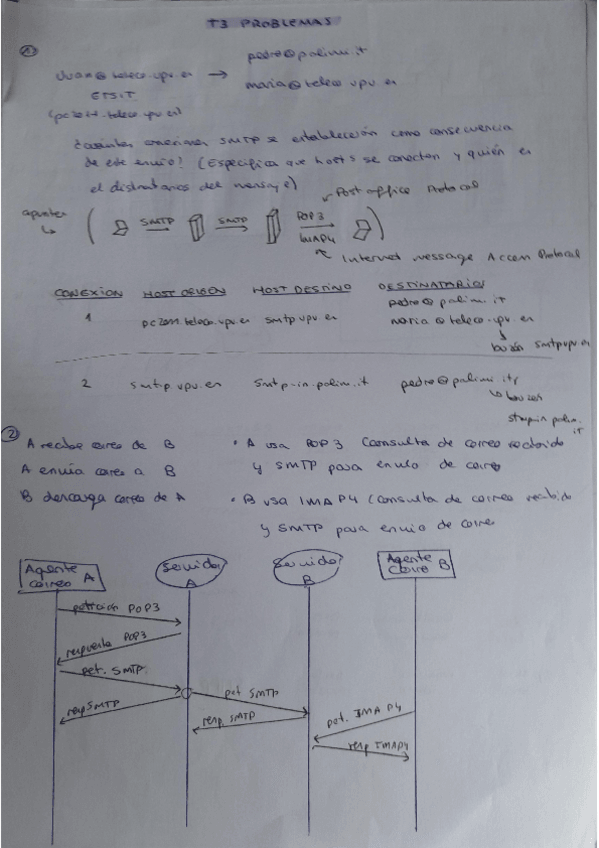 T3 PROBLEMAS
①
juan@teleco.upv.es → pedro@polimi.it
maria@teleco.upv.es
ETSIT
(pc2011.teleco.upv.es)
¿cuántas conexiones SMTP se establecerán como consecuencia
de este envío? (Especifica que hosts se conectan y quién es
el destinatarios del mensaje)
Post office Protocol
apuntes
( SMTP → SMTP → POP3 / IMAP4 )
Internet message Access Protocol
CONEXION HOST ORIGEN HOST DESTINO DESTINATARIO
pedro@polimi.it
1 teleco.upv.es smtp.upv.es maria@teleco.upv.es
buzón smtp.upv.es
2 smtp.upv.es smtp-in.polimi.it pedro@polimi.it
buzón
it
②
A recibe correo de B • A usa POP3 (consulta de correo recibido
A envía correo a B y SMTP para envío de correo
B descarga correo de A • B usa IMAP4 (consulta de correo recibido
y SMTP para envio de correo
Agente correo A
Servidor A
Servidor B
Agente Correo B
petición POP3
respuesta POP3
pet. SMTP.
resp SMTP
pet SMTP
resp. SMTP
pet. IMAP4
resp IMAP4